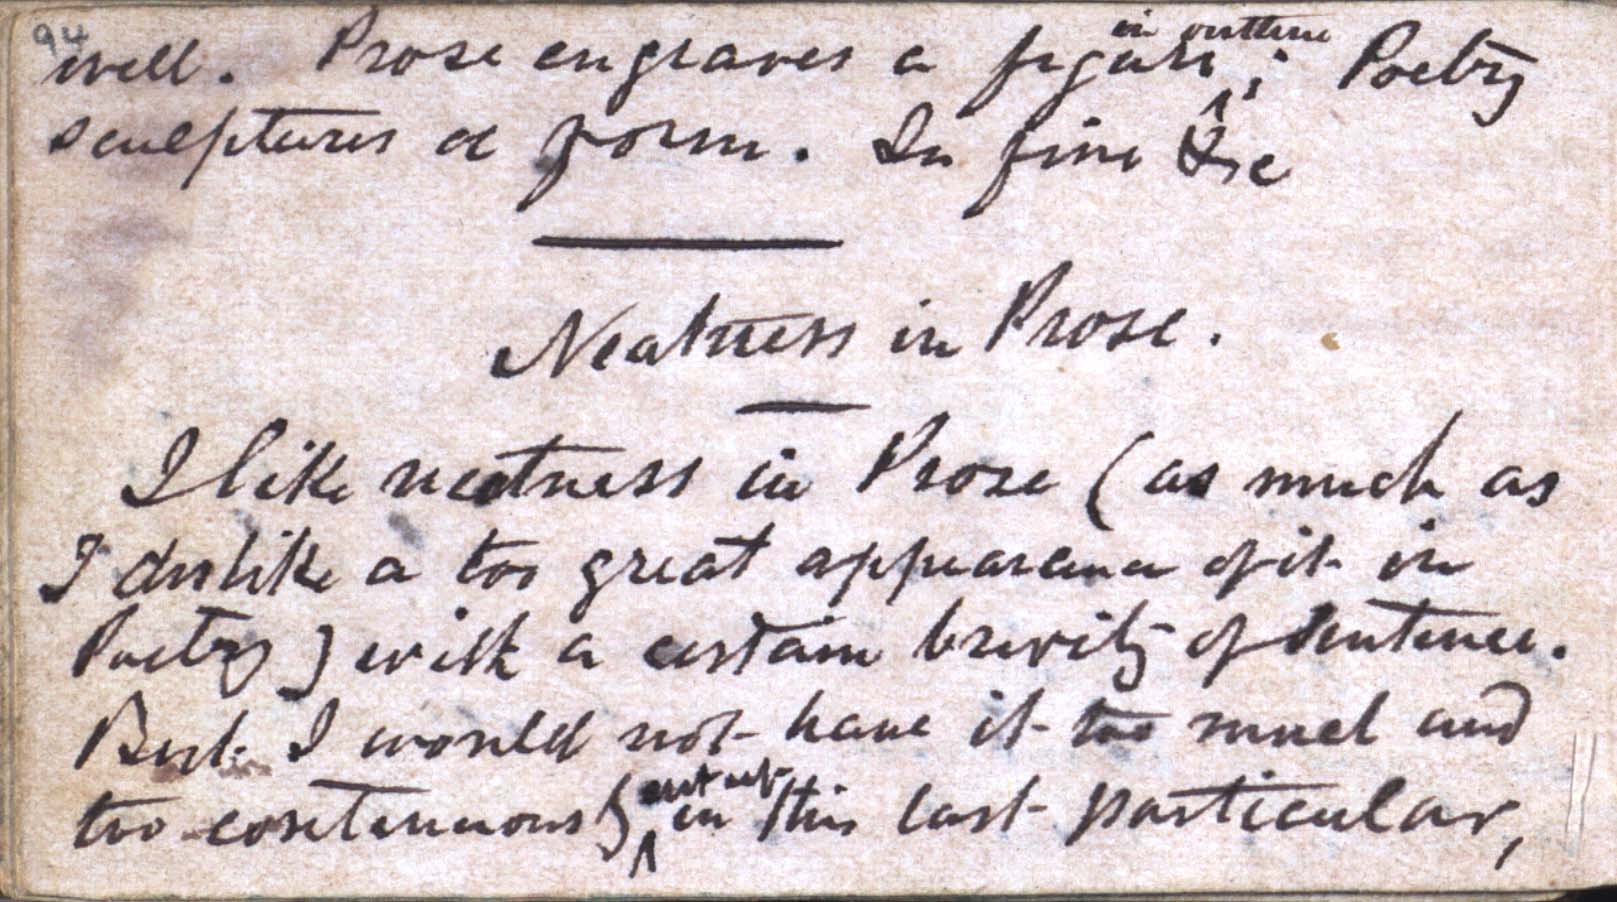 94
well. Prose engraves a figure in outline; Poetry
sculptures a form. In fine &c
Neatness in Prose.
I like neatness in Prose (as much as
I dislike a too great appearance of it in
Poetry) with a certain brevity of sentence.
But I would not have it too much and
too continuously cut up in this last particular,